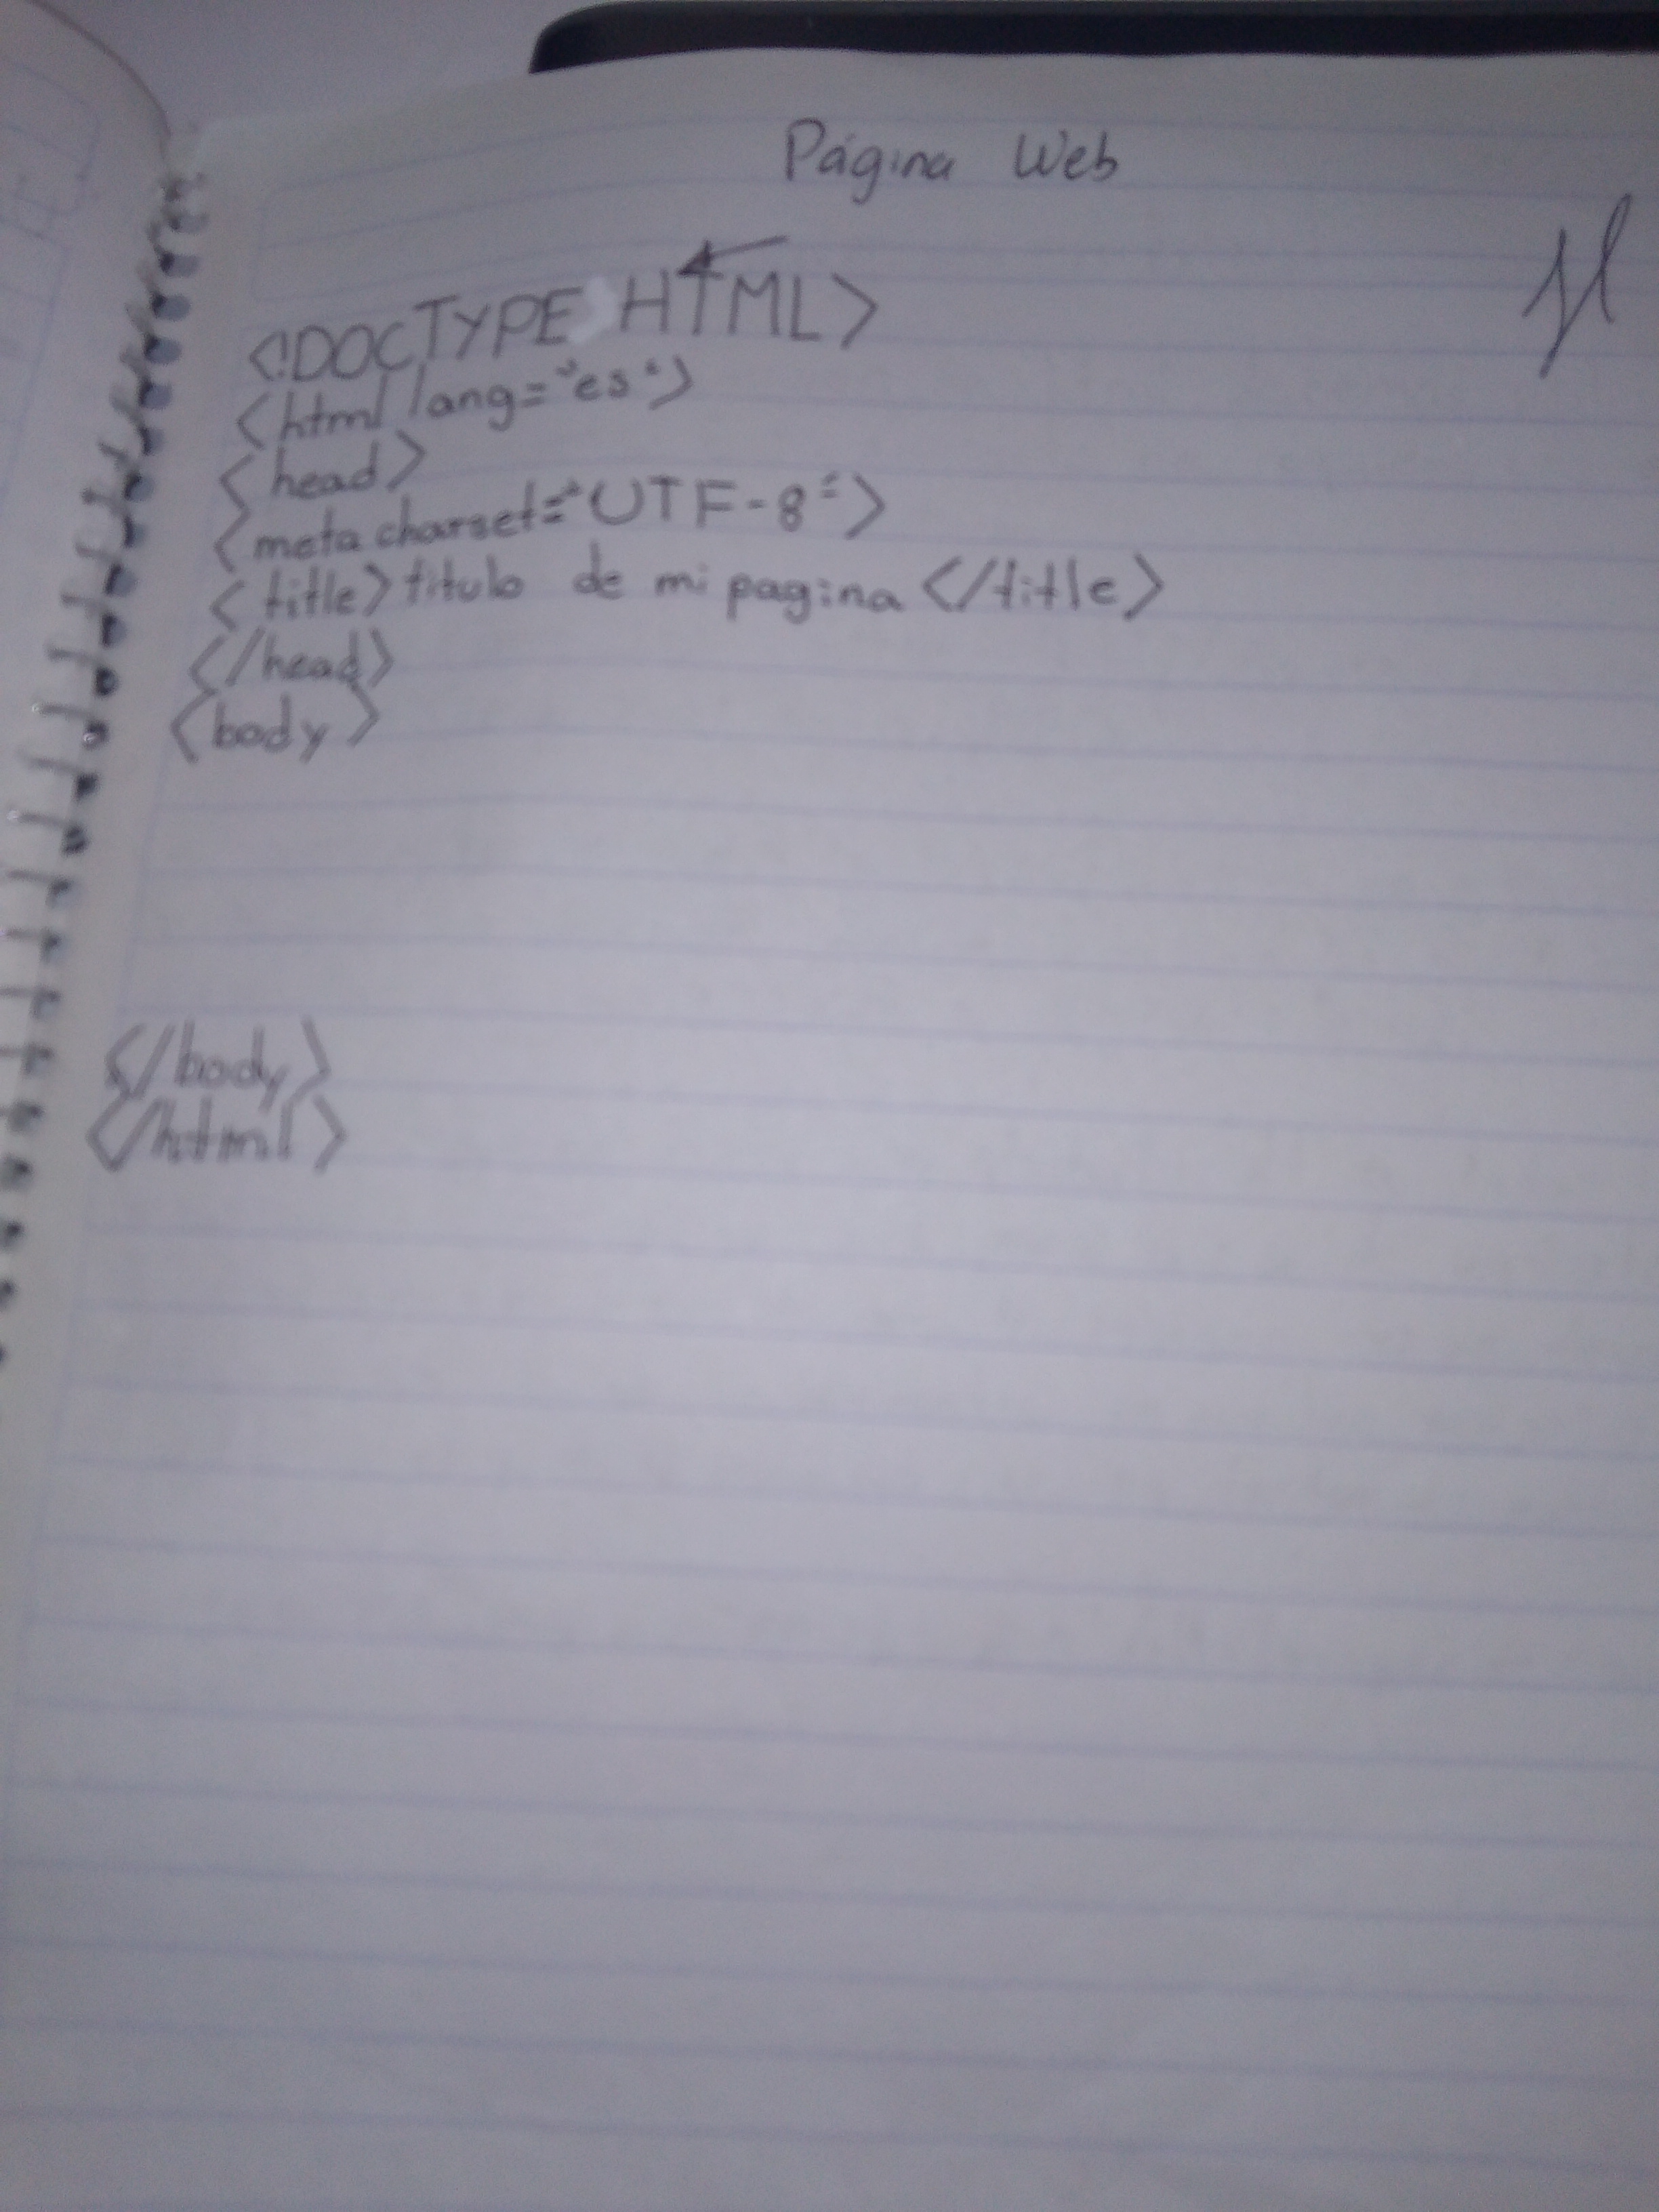 Página Web
<!DOCTYPE HTML>
<html lang="es">
<head>
<meta charset="UTF-8">
<title>titulo de mi pagina </title>
</head>
<body>
</body>
</html>